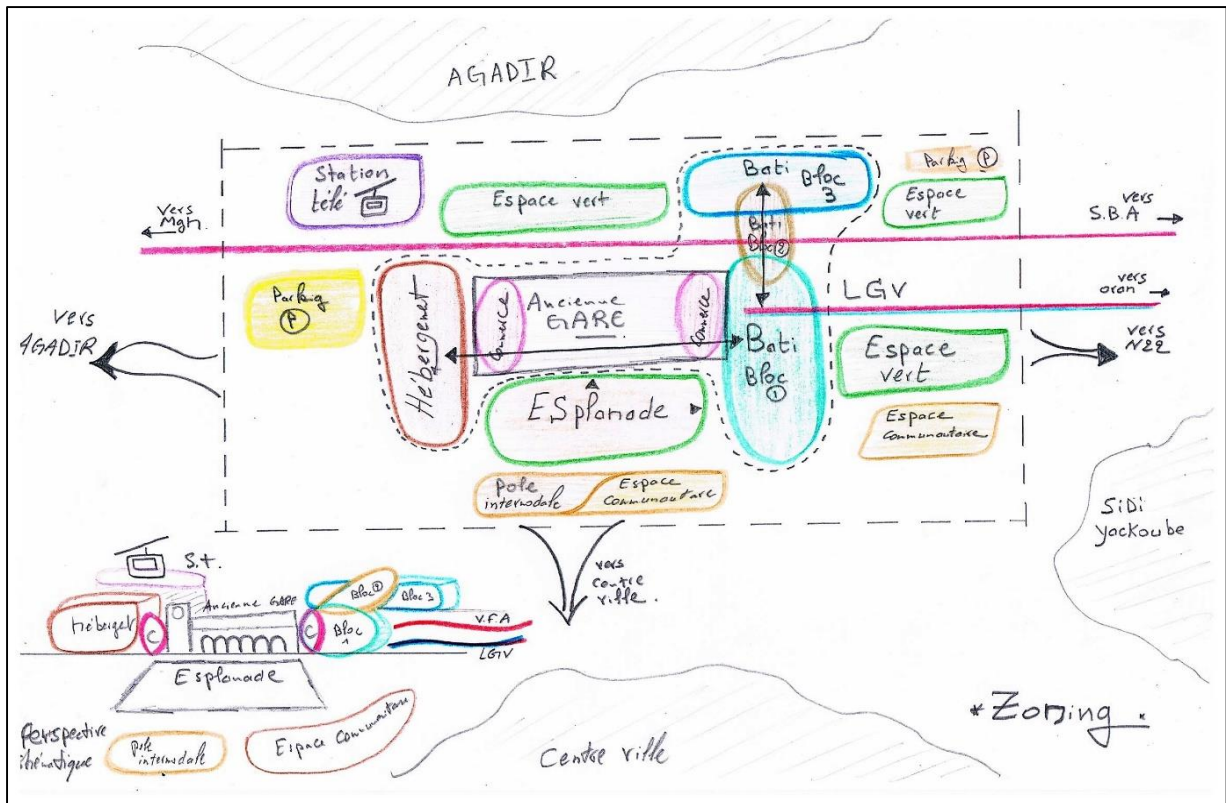 AGADIR
Station
télé
Espace vert
Bati
Bloc
3
Parkig P
Espace
vert
vers
Mgh.
vers
S.B.A
Bati
Bloc 2
Parkig
P
Hébergemet.
Commerce
Ancienne
GARE
Commerce
LGV
vers
oran
vers
AGADIR
Bati
Bloc 1
Espace
vert
vers
N22
ESplanade
Espace
Communoutaire
Pole
intermodale
Espace
Communoutare
SiDi
yackoube
vers
Centre
ville.
S.t.
Ancienne GARE
Bloc 2
Bloc 3
Héberget
C
C
Bloc
1
V.F.A
LGV
Esplanade
Perspective
pole
intermodale
Espace Communoutare
Centre ville
*Zoning.